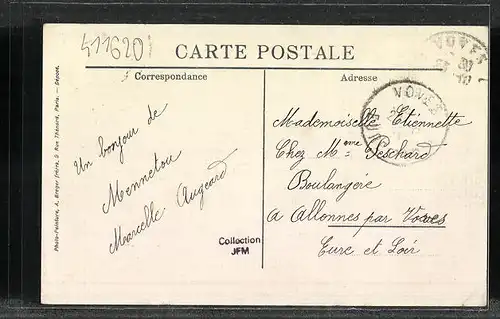 411620
CARTE POSTALE
Correspondance
Adresse
VOVES
VOVES
Un bonjour de
Mennetou
Marcelle Augeard
Mademoiselle Etiennette
Chez Mme Peschard
Boulangère
a Allonnes par Voves
Eure et Loir
Collection
JFM
Photo-Peinture, A. Breger frères, 9 Rue Thénard, Paris. — Déposé.